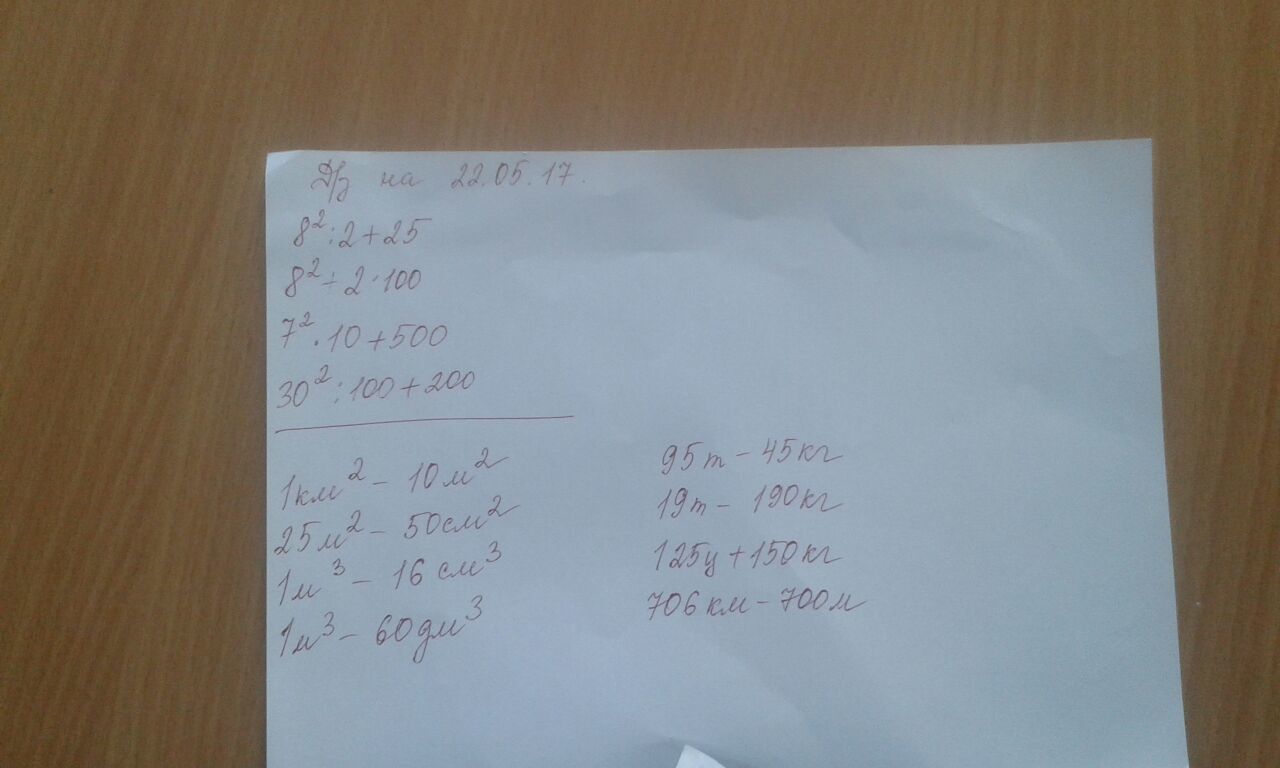 Д/з на 22.05.17.
8²:2+25
8²+2·100
7²·10+500
30²:100+200
1км²-10м²
25м²-50см²
1м³-16см³
1м³-60дм³
95т-45кг
19т-190кг
125ц+150кг
706км-700м